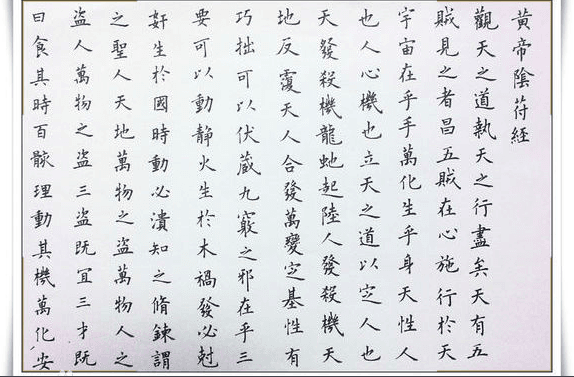 黃帝陰苻經
觀天之道執天之行盡矣天有五
賊見之者昌五賊在心施行於天
宇宙在乎手萬化生乎身天性人
也人心機也立天之道以㝎人也
天發殺機龍虵起陸人發殺機天
地反覆天人合發萬變㝎基性有
巧拙可以伏蔵九竅之邪在乎三
要可以動静火生於木禍發必尅
奸生於國時動必潰知之脩鍊謂
之聖人天地萬物之盗萬物人之
盗人萬物之盗三盗既冝三才既
曰食其時百骸理動其機萬化安